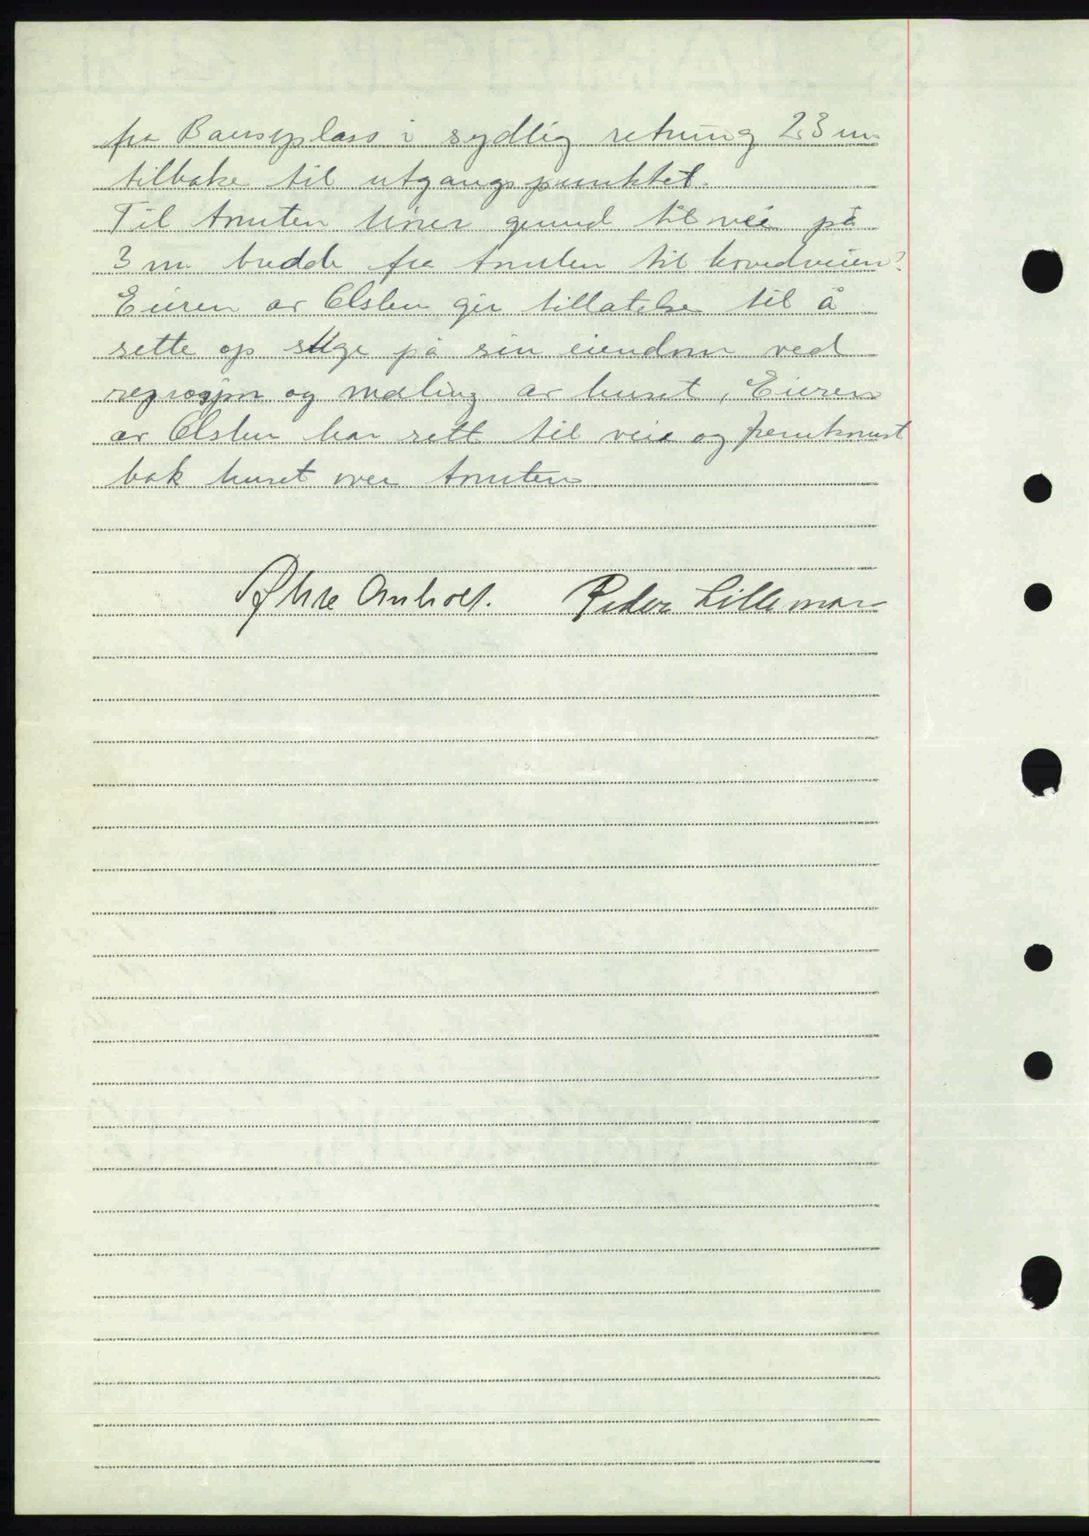 fra Bauseplass i sydlig retning 23 m
tilbake til utgangspunktet.
Til tomten hörer grund til vei på
3 m bredde fra tomten til hovedveien.
Eieren av Elslen gir tillatelse til å
sette op stige på sin eiendom ved
reprasjon og maling av huset, Eieren
av Elslen har rett til veie og fremkomst
bak huset over tomten
Peder Lillemoen